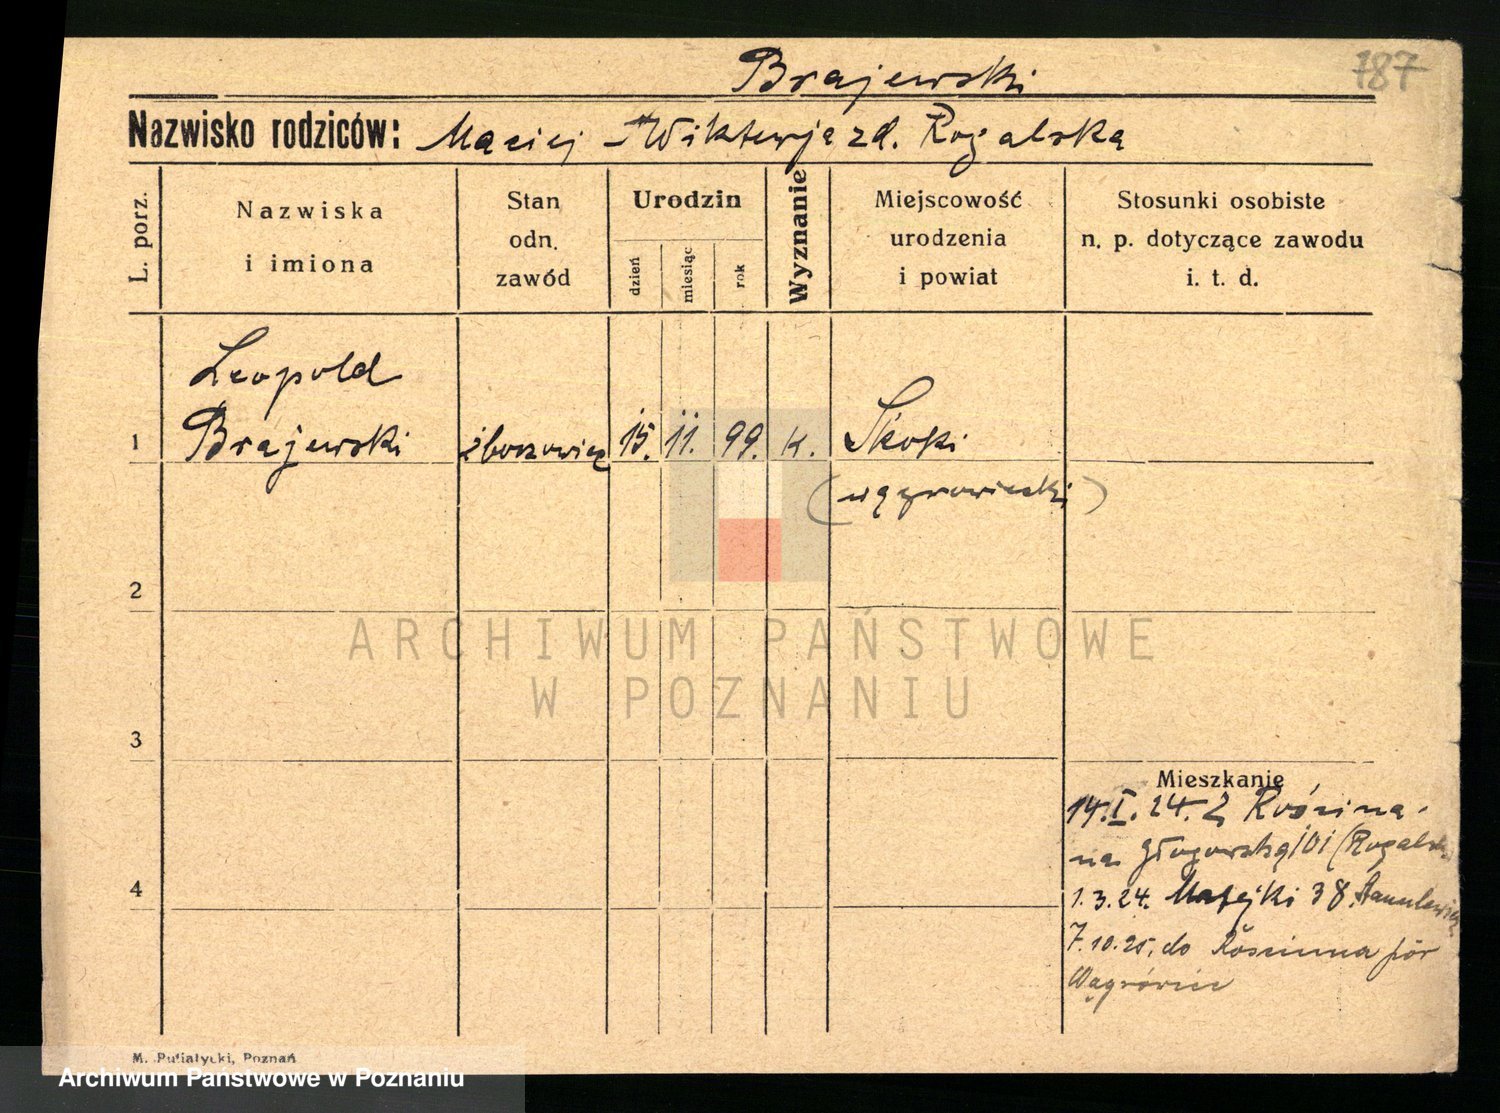 Brajewski
787
Nazwisko rodziców: Maciej i Wiktorja zd. Rogalska
L. porz.
Nazwiska
i imiona
Stan
odn.
zawód
Urodzin
dzień
miesiąc
rok
Wyznanie
Miejscowość
urodzenia
i powiat
Stosunki osobiste
n. p. dotyczące zawodu
i. t. d.
Leopold
1 Brajewski zbożowiec 15. 11. 99. k. Skoki
(wągrowiecki)
2
3
4
ARCHIWUM PAŃSTWOWE
W POZNANIU
Mieszkanie
14.I.24. Z Rościna
na Głogowską 101 (Rogalska
1.3.24. Matejki 38.
7.10.25. do Rościnna
M. Putiatycki, Poznań
Archiwum Państwowe w Poznaniu